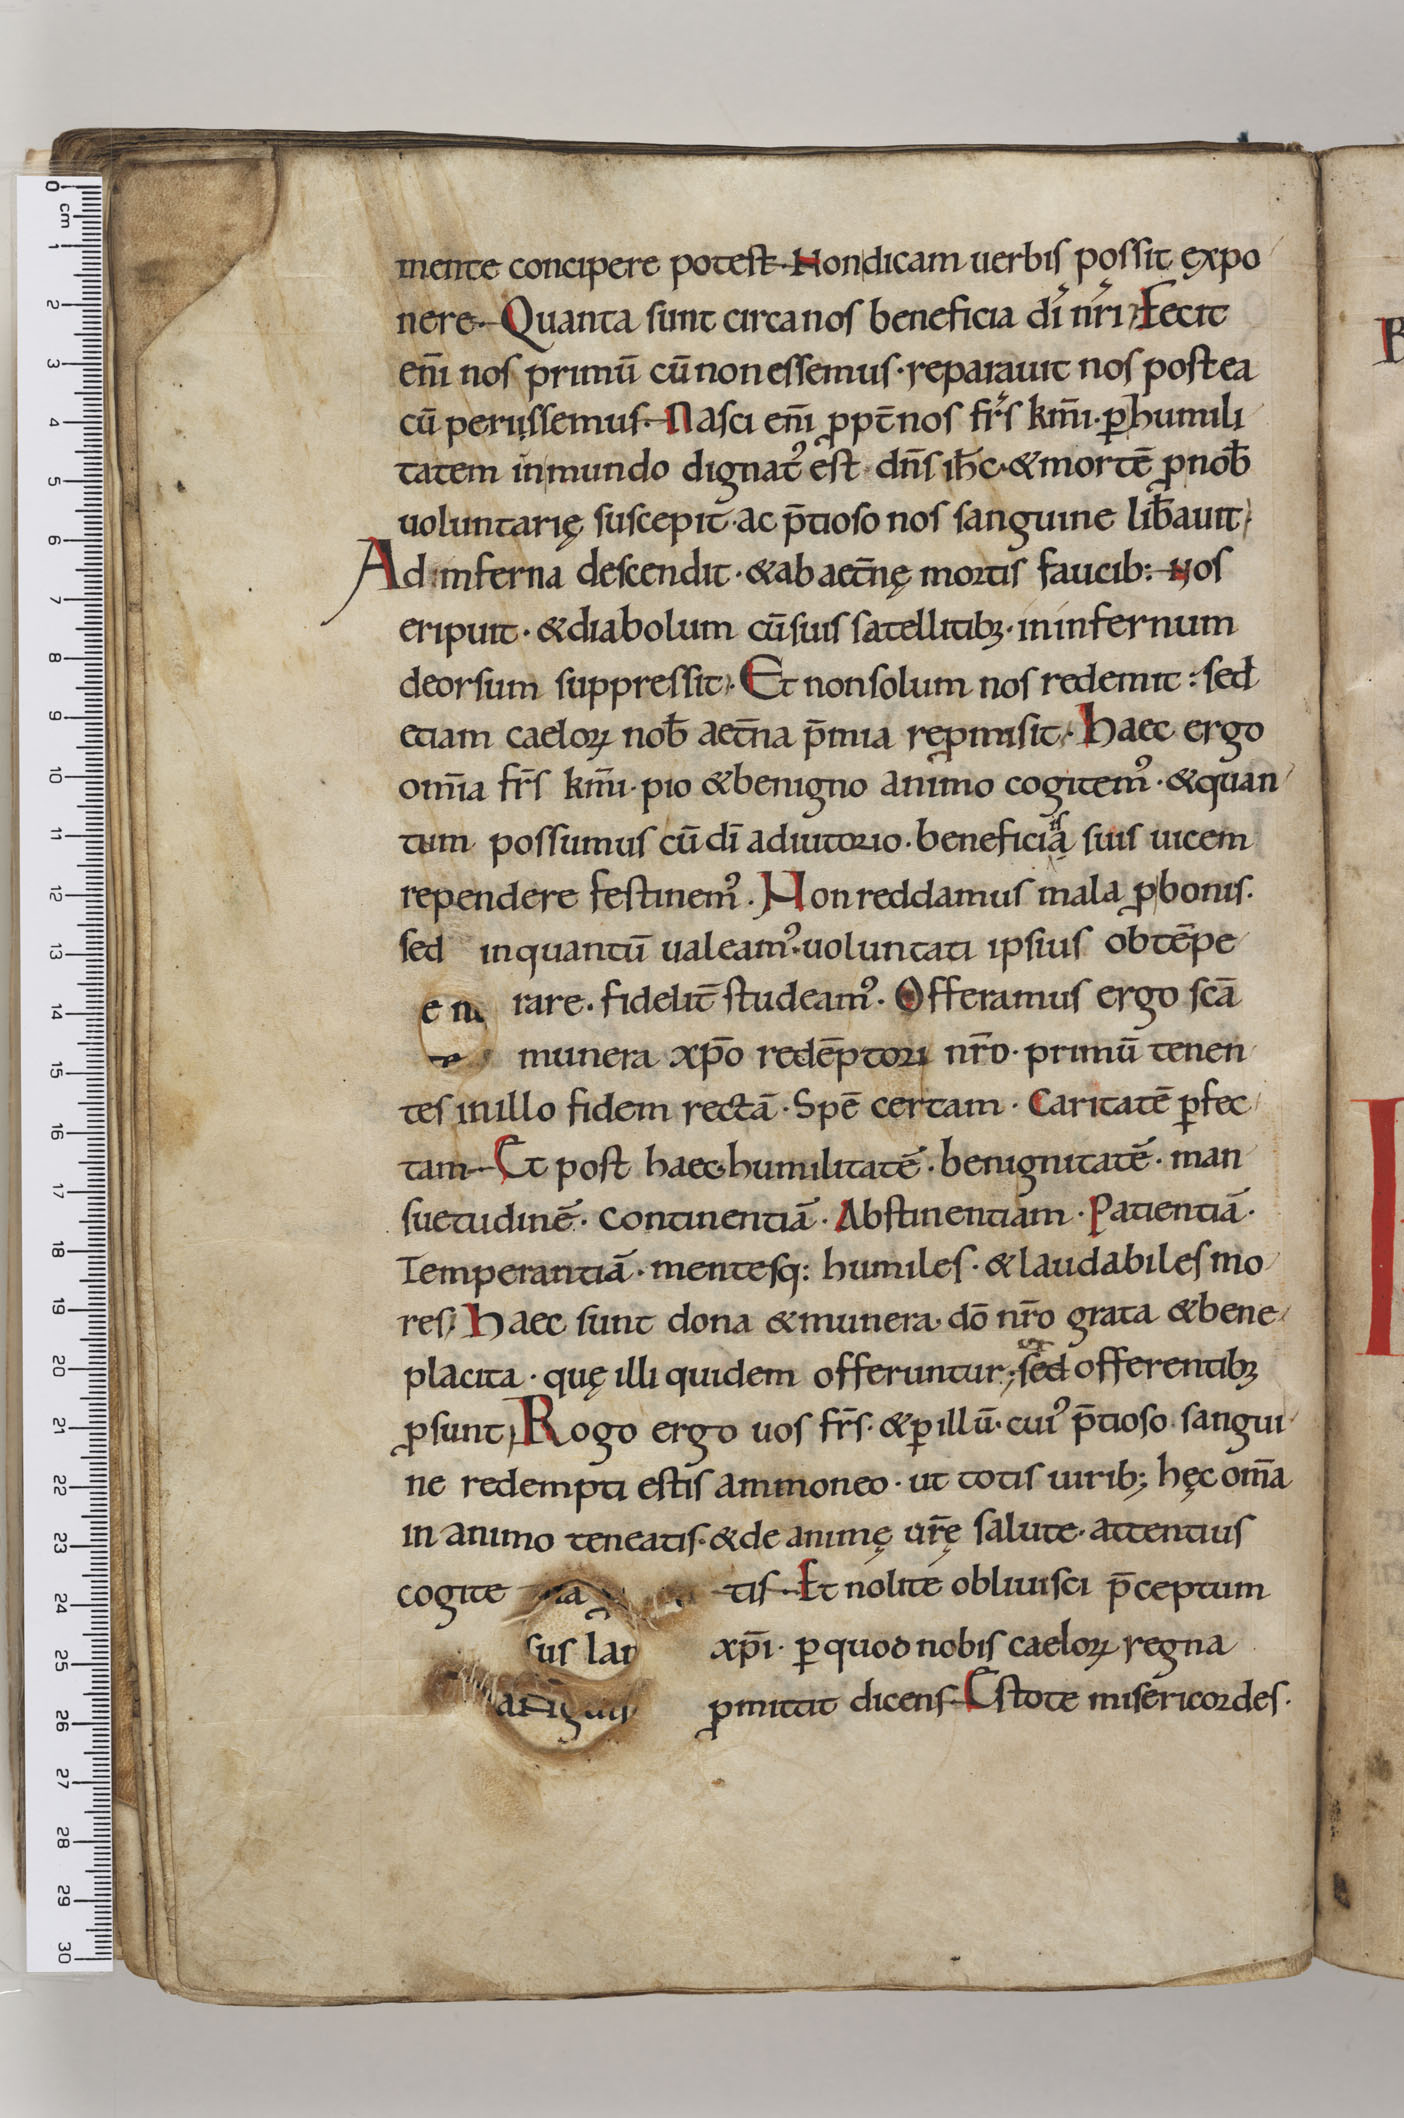 mente concipere potest. Non dicam uerbis possit expo
nere. Quanta sunt circa nos beneficia dī nr̄i; Fecit
enī nos primū cū non essemus · reparauit nos postea
cū periissemus. Nasci enī ꝓpt̄ nos fr̄s km̄i · ꝑ humili
tatem in mundo dignatꝰ est dn̄s ih̄c · & mortē ꝓ nob̄
uoluntarię suscepit · ac p̄tioso nos sanguine lib̄auit;
Ad inferna descendit · & ab aet̄nę mortis faucib: Nos
eripuit · & diabolum cū suis satellitibꝫ · in infernum
deorsum suppressit; Et non solum nos redemit: sed
etiam caeloꝝ nob̄ aet̄na p̄mia reꝓmisit; Haec ergo
om̄ia fr̄s km̄i · pio & benigno animo cogitemꝰ · & quan
tum possumus cū dī adiutorio · beneficiis suis uicem
rependere festinemꝰ. Non reddamus mala ꝓ bonis.
sed inquantū ualeamꝰ · uoluntati ipsius obtēpe
rare · fidelit̄ studeamꝰ. Offeramus ergo scā
munera xp̄o redēptori nr̄o · primū tenen
tes in illo fidem rectā · Spē certam · Caritatē ꝑfec
tam. Et post haec humilitatē · benignitatē · man
suetudinē · Continentiā · Abstinentiam · Patientiā ·
Temperantiā · mentesq: humiles · & laudabiles mo
res; Haec sunt dona & munera dō nr̄o grata & bene
placita · quę illi quidem offeruntur; sed offerentibꝫ
ꝓsunt; Rogo ergo uos fr̄s · & ꝑ illū · cuiꝰ p̄tioso sangui
ne redempti estis ammoneo · ut totis uirib; hęc om̄a
in animo teneatis · & de animę ur̄ę salute · attentius
cogite tis. Et nolite obliuisci p̄ceptum
sus lar xp̄i · ꝑ quod nobis caeloꝝ regna
ꝓmittit dicens. Estote misericordes.